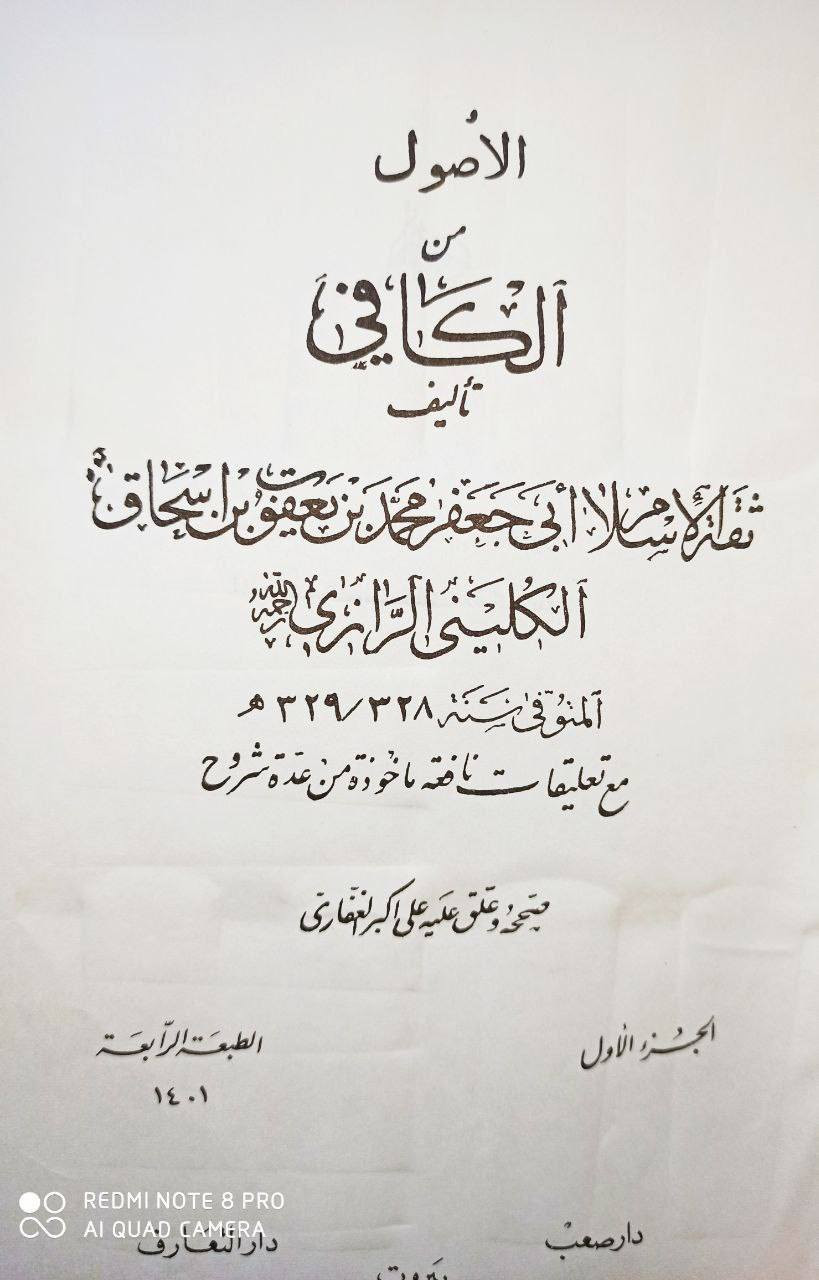 الأصول
من
الكافي
تأليف
ثقة الإسلام أبي جعفر محمد بن يعقوب بن إسحاق
الكليني الرازي رحمه الله
المتوفى سنة ٣٢٨/٣٢٩ ه
مع تعليقات نافعه ماخوذة من عدة شروح
صححه وعلق عليه علي اكبر الغفاري
الجزء الأول
الطبعة الرابعة
١٤٠١
دار صعب
دار التعارف
بيروت
REDMI NOTE 8 PRO
AI QUAD CAMERA